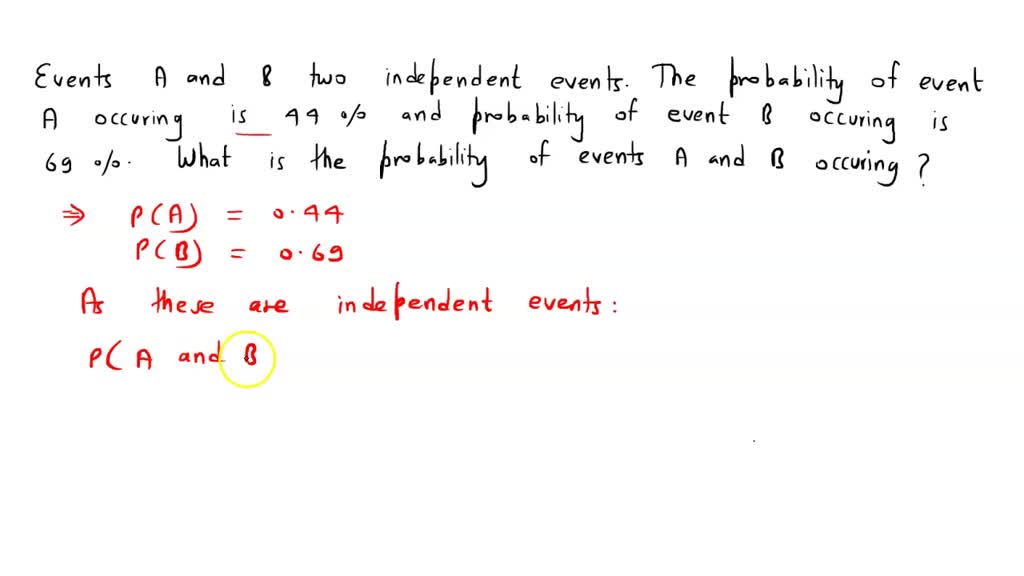 Events A and B two independent events. The probability of event
A occuring is 44 % and probability of event B occuring is
69 %. What is the probability of events A and B occuring ?
⇒ P(A) = 0.44
P(B) = 0.69
As these are independent events:
P( A and B